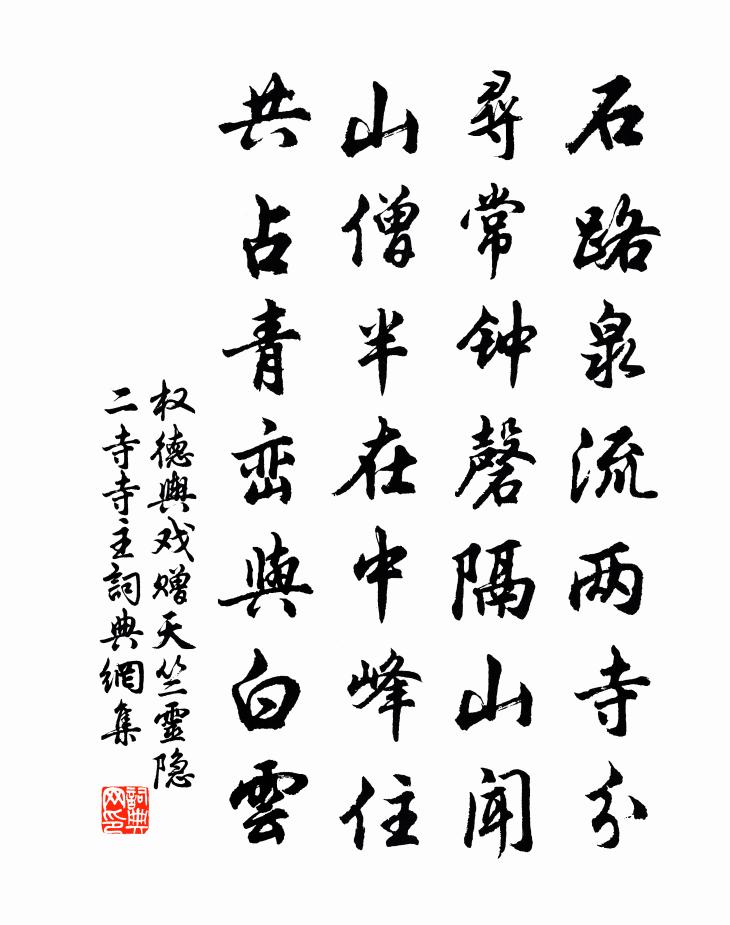 石路泉流两寺分
尋常钟磬隔山闻
山僧半在中峰住
共占青峦與白雲
权德興戏赠天竺靈隐
二寺寺主詞典網集
詞典
网印